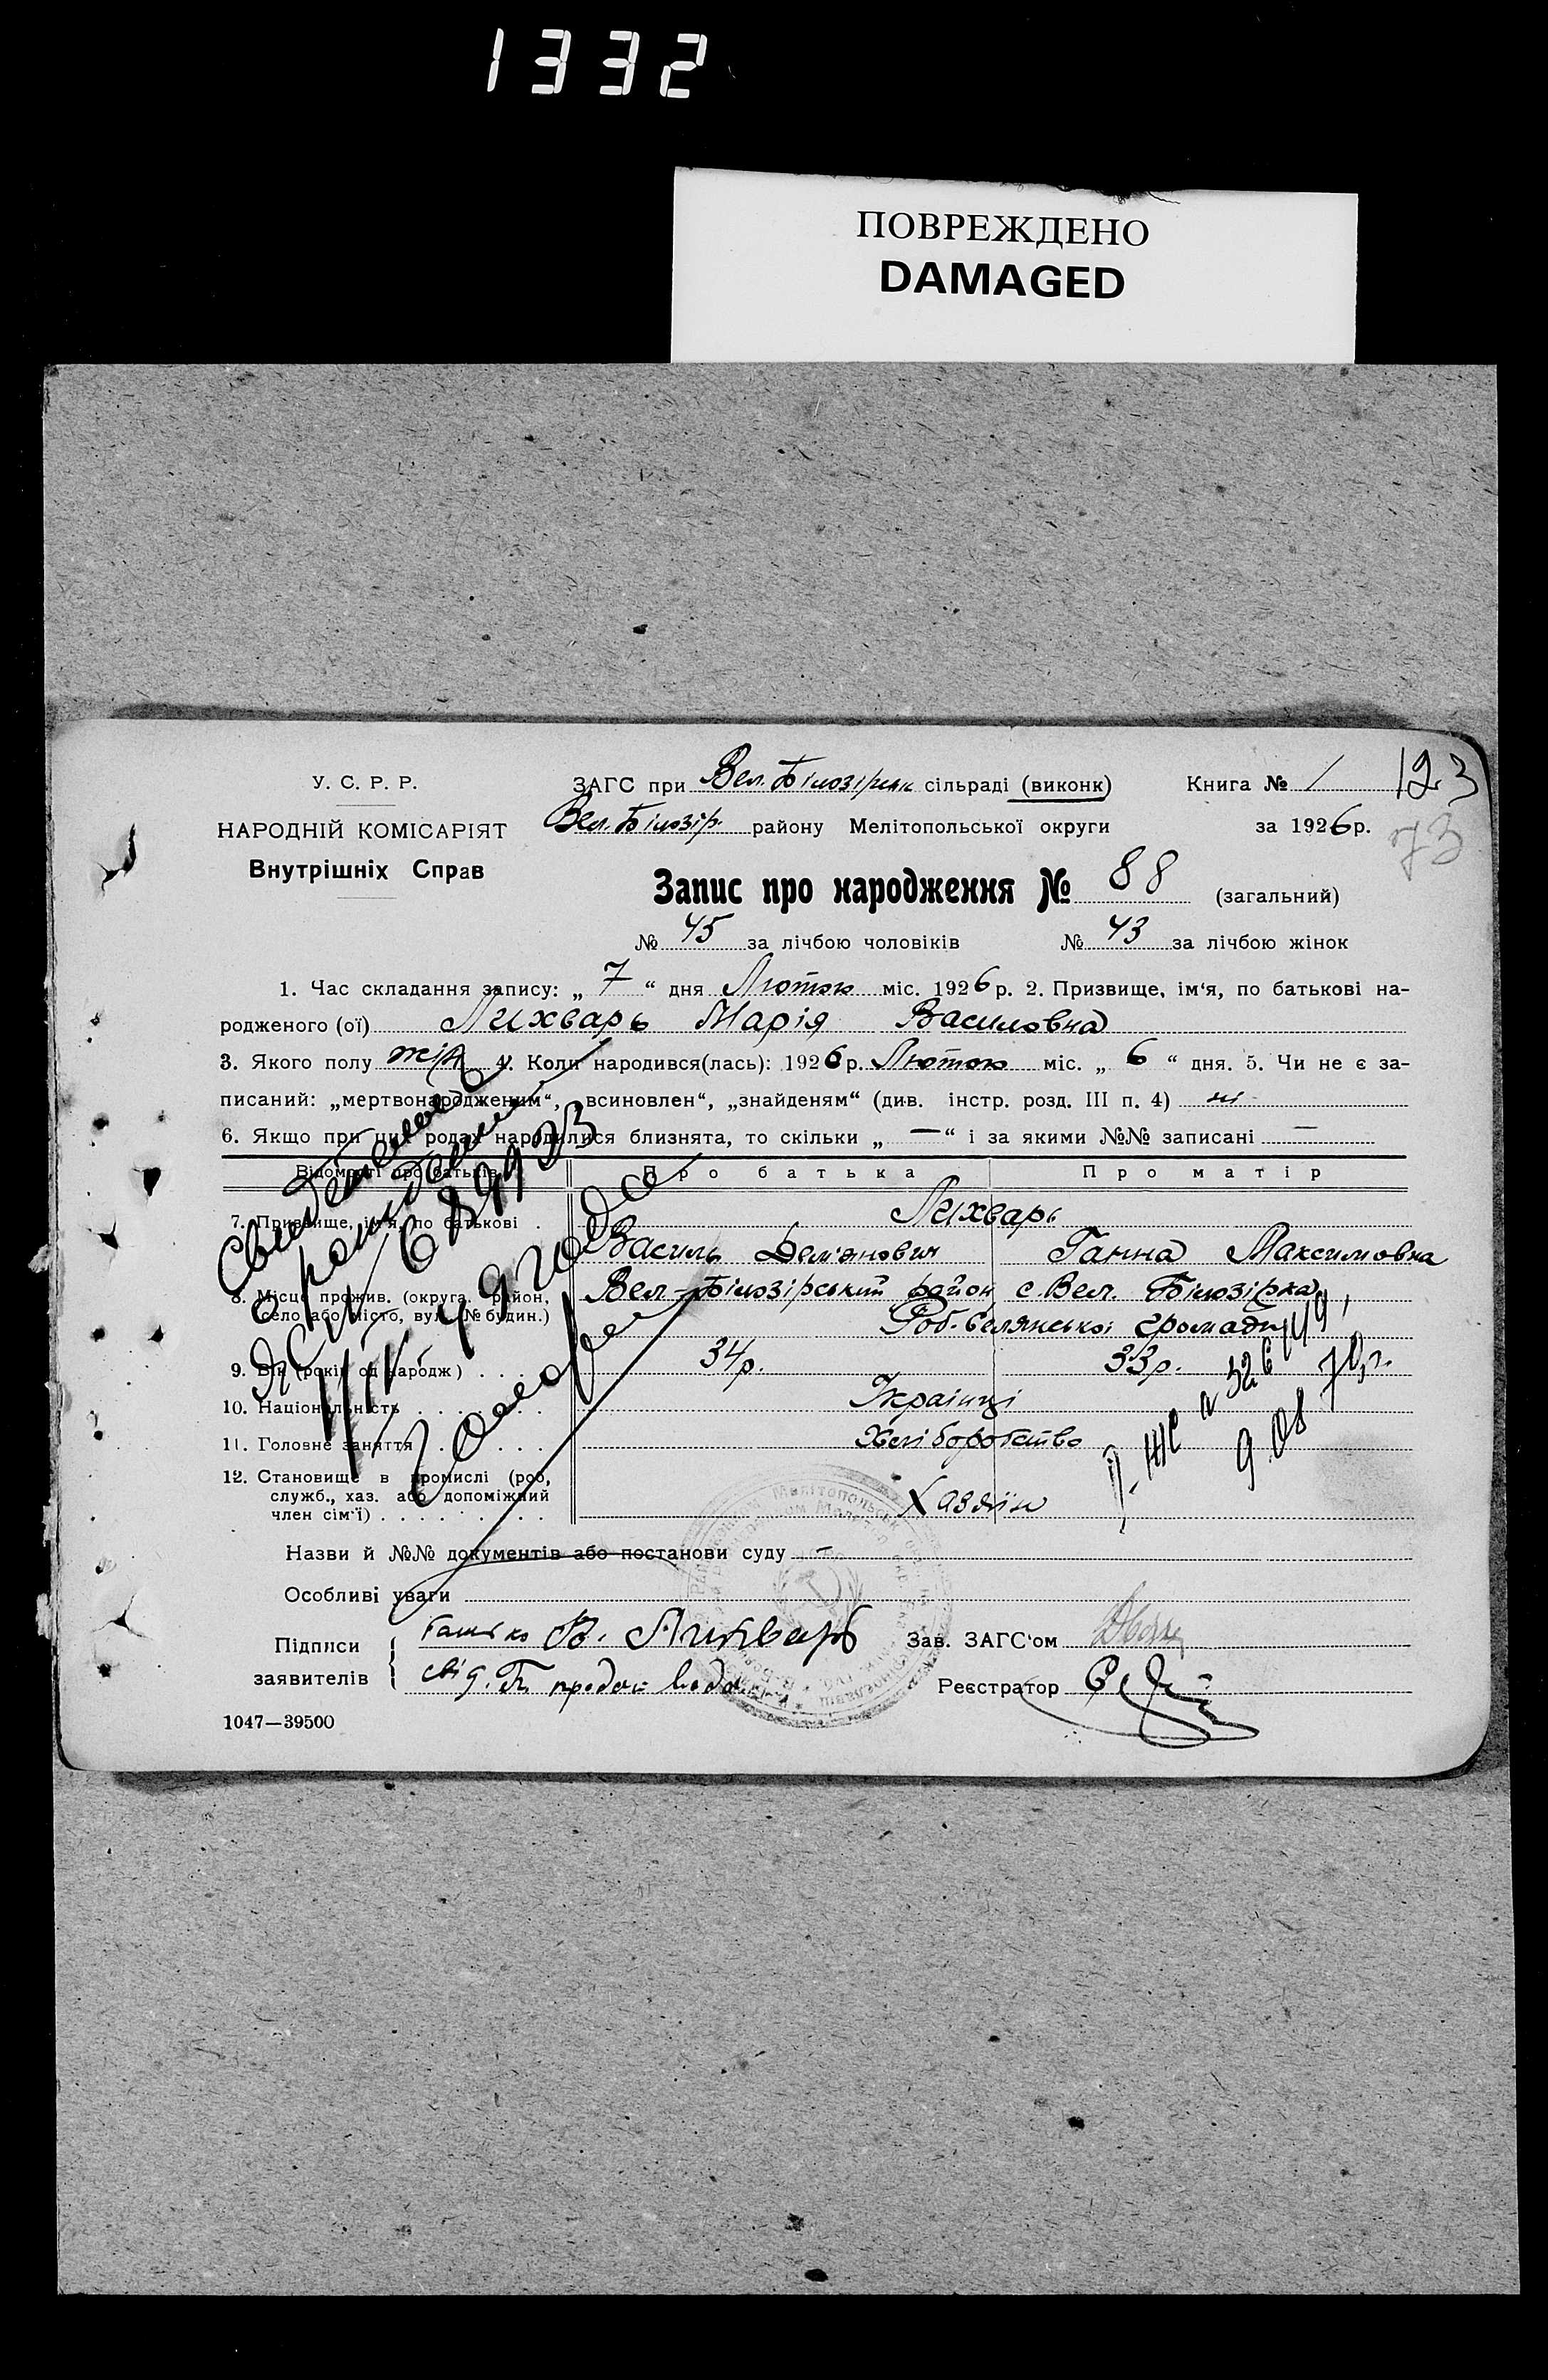 1332
ПОВРЕЖДЕНО
DAMAGED
У. С. Р. Р.
НАРОДНІЙ КОМІСАРІЯТ
Внутрішніх Справ
ЗАГС при Вел. Білозірськ сільраді (виконк) Книга № 1 123
Вел. Білозір району Мелітопольської округи за 1926 р.
73
Запис про народження № 88 (загальний)
№ 45 за лічбою чоловіків № 43 за лічбою жінок
1. Час складання запису: „ 7 “ дня Лютого міс. 1926 р. 2. Призвище, ім‘я, по батькові на-
родженого (ої) Лихварь Марія Василовна
3. Якого полу жін 4. Коли народився(лась): 1926 р. Лютого міс. „ 6 “ дня. 5. Чи не є за-
писаний: „мертвонародженим“, „всиновлен“, „знайденям“ (див. інстр. розд. III п. 4) ні
6. Якщо при цих родах народилися близнята, то скільки „ — “ і за якими №№ записані —
Відомості про батьків Про батька Про матір
7. Призвище, ім‘я, по батькові . Лихварь
Василь Дем'янович Ганна Максимовна
8. Місце прожив. (округа, район, Вел-Білозірський район с. Вел. Білозірка
село або місто, вул. № будин.) Роб-Селянської громади
9. Вік (років од народж) . . . . 34 р. 33 р.
10. Національність . . . . . . . Українці
11. Головне заняття . . . . . . Хліборобство
12. Становище в промислі (роб,
служб., хаз. або допоміжний
член сім‘ї) . . . . . . . . . Хазяїн
Назви й №№ документів або постанови суду —
Особливі уваги
Підписи
заявителів
батько В. Лихварь Зав. ЗАГС‘ом
свід. Реєстратор
1047—39500
Свидетельство
о рождении
49 года
9.08